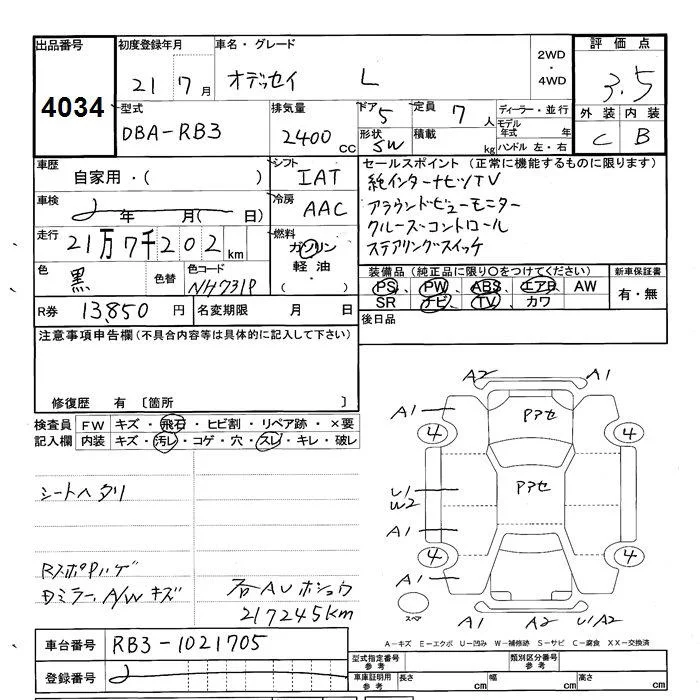 出品番号 初度登録年月 車名・グレード 2WD 評価点
4034 21 7月 オデッセイ L ・4WD 3.5
型式 排気量 ドア 5 定員 7人 ディーラー・並行 外装 内装
DBA-RB3 2400cc 形状 SW 積載 kg モデル年式 年 C B
ハンドル 左・右
車歴 自家用・( ) シフト IAT セールスポイント(正常に機能するものに限ります)
純インターナビツTV
車検 年 月( 日) 冷房 AAC アラウンドビューモニター
走行 21万7千202km 燃料 ガソリン クルーズコントロール
軽油 ステアリングスイッチ
色 黒 色替 色コード NH731P ・( )
装備品(純正品に限り○をつけてください) 新車保証書
PS、PW、ABS、エアB、AW 有・無
SR ナビ TV カワ
R券 13,850円 名変期限 月 日 後日品
注意事項申告欄(不具合内容等は具体的に記入して下さい)
修復歴 有 〔箇所 〕
検査員 FW キズ・飛石・ヒビ割・リペア跡・×要
記入欄 内装 キズ・汚レ・コゲ・穴・スレ・キレ・破レ
A2 A1
A1 Pアセ
4 4
シートヘタリ
U1 Pアセ
W2
A1
4 4
A1
Rスポ
ミラー、A/Wキズ
217245km
スペア A1 A2 U1A2
A-キズ E-エクボ U-凹み W-補修跡 S-サビ C-腐食 XX-交換済
車台番号 RB3-1021705
型式指定番号 参考 類別区分番号 参考
登録番号 車庫証明用 参考 長さ cm 幅 cm 高さ cm